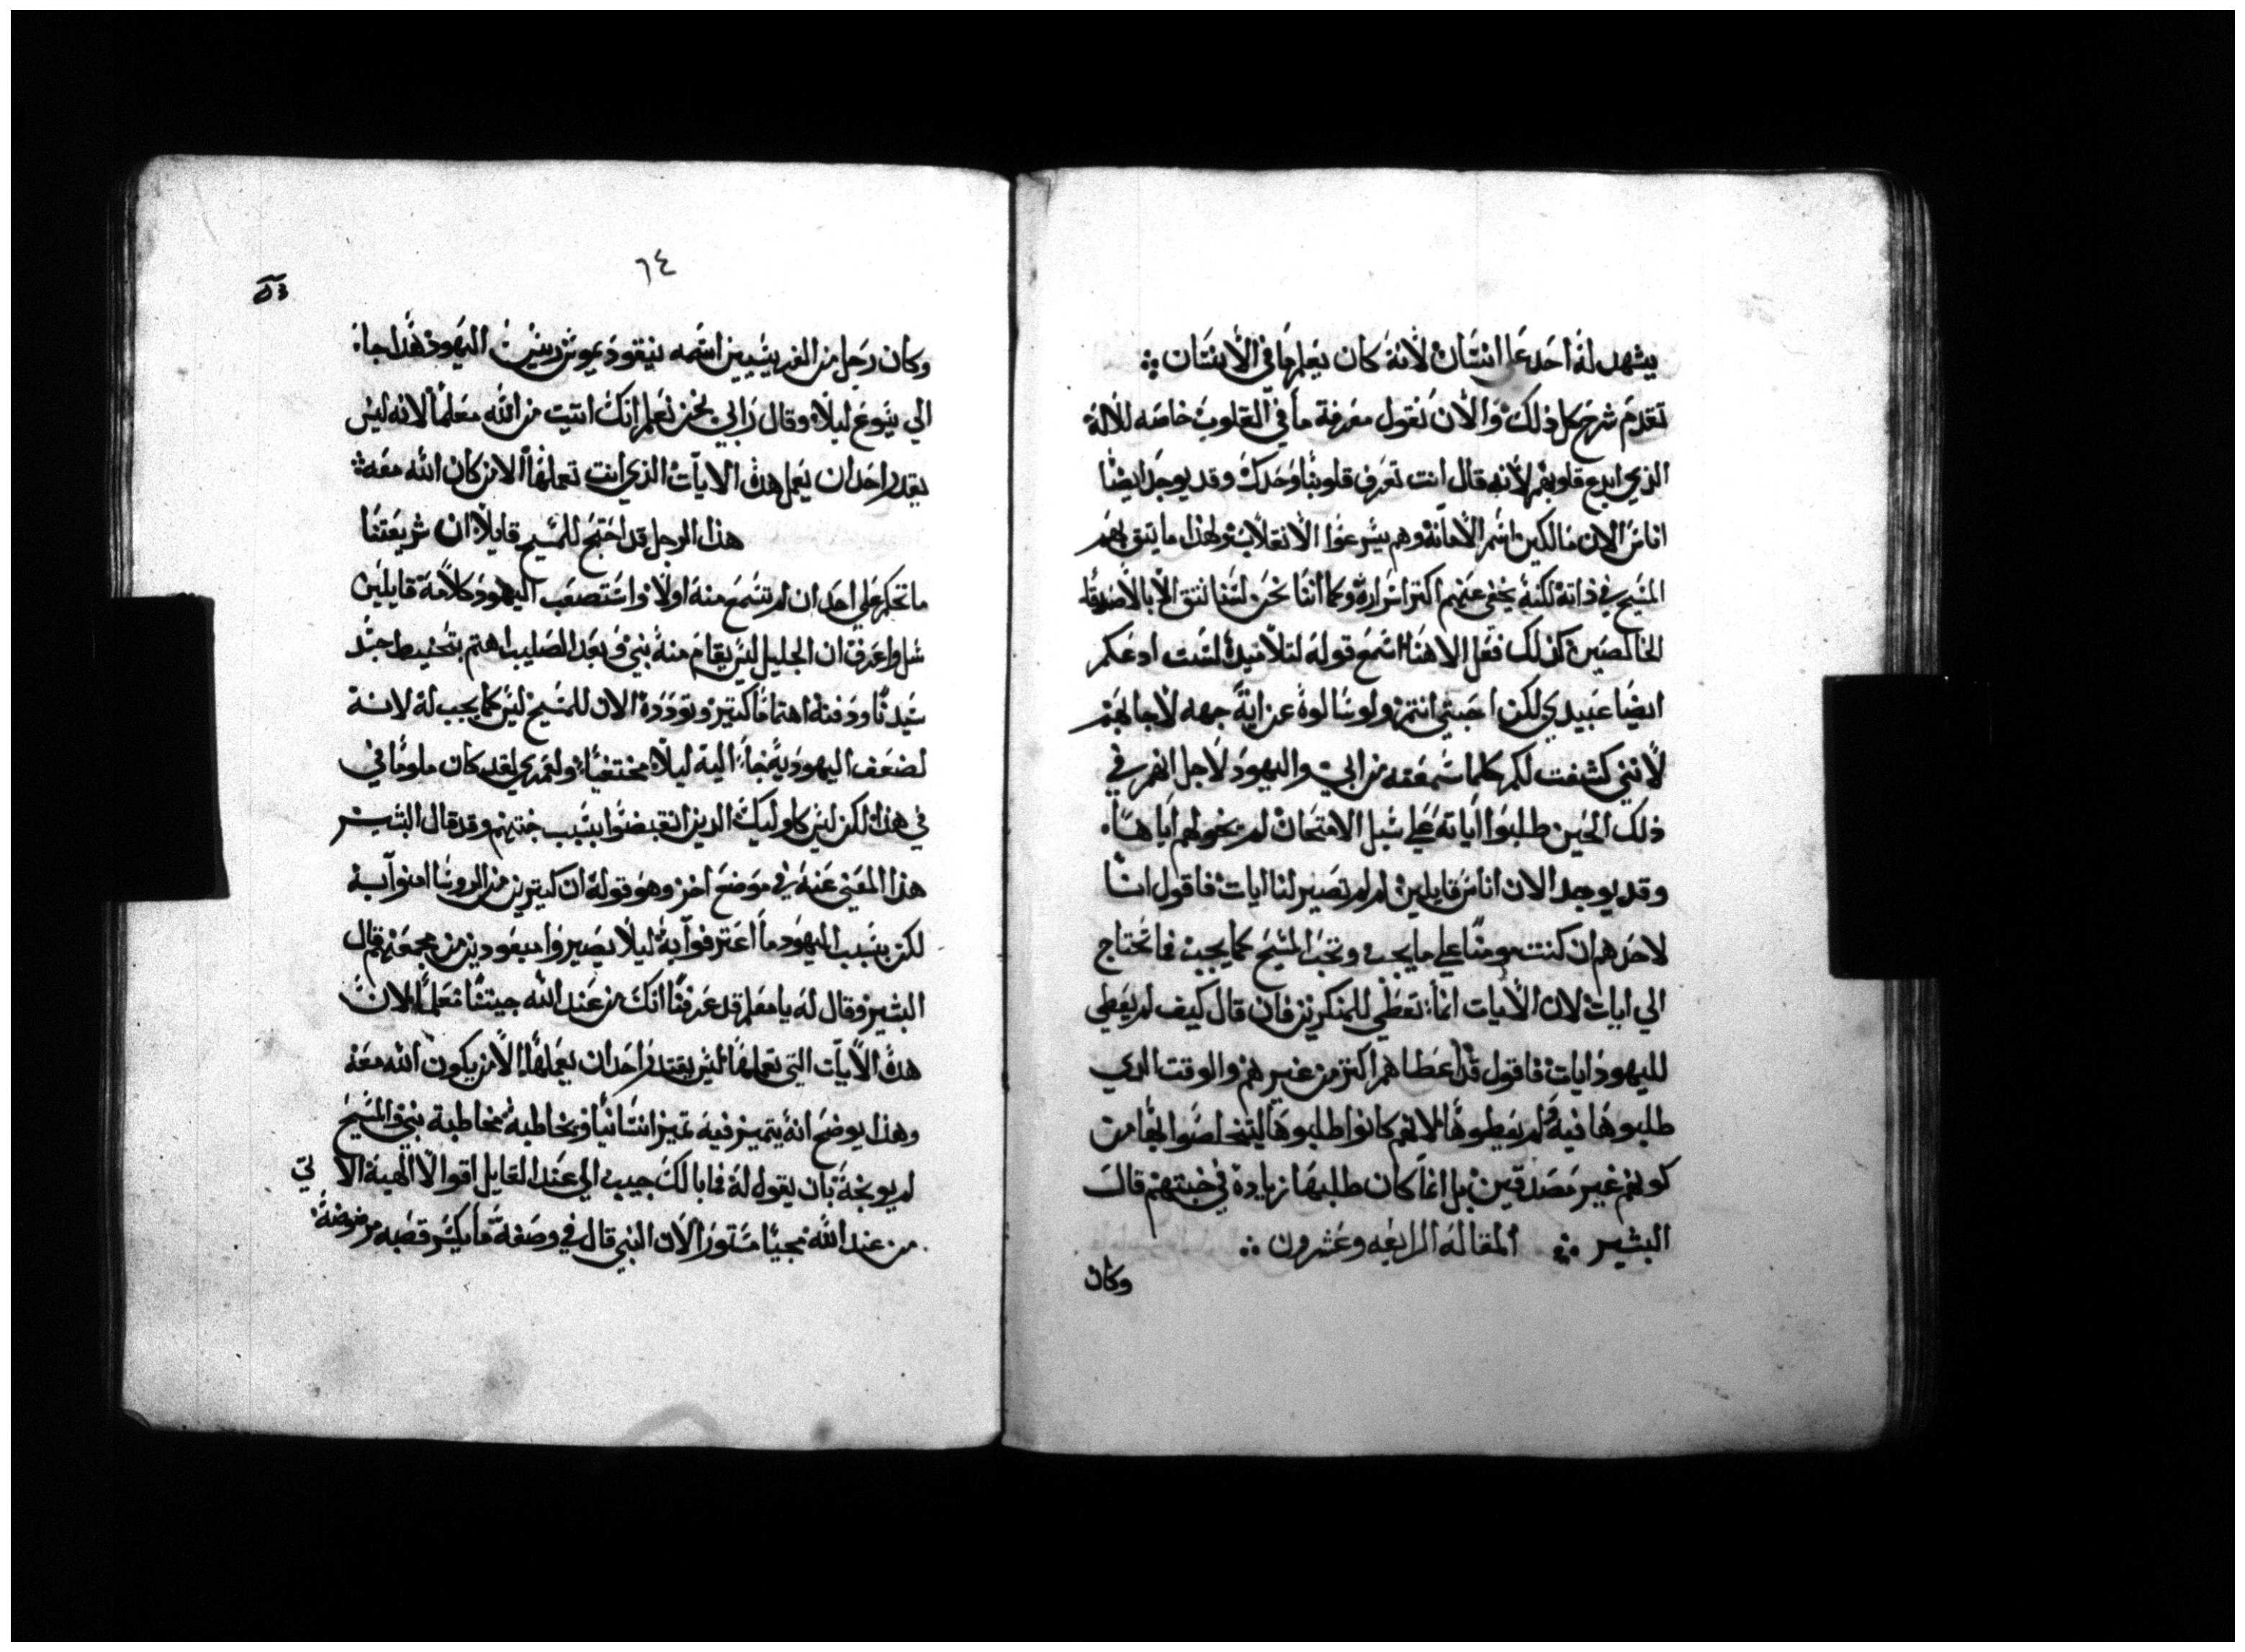 يشهد له احد على انسان لانه كان يعلم ما في الانسان
تقدم شرح كل ذلك والان نقول معرفة ما في القلوب خاصه للاله
الذي ابدع قلوبهم لانه قال انت تعرف قلوبنا وحدك وقد يوجد ايضا
اناس الان مالكين اسم الامانة وهم يشرعوا الانقلاب ولهذا ما يتق بهم
المسيح في ذاته لكنه يخفي عنهم اكتر اسراره وكما اننا نحن لسنا نتق الا بالاصدقا
الخالصين كذلك فعل الاهنا اسمع قوله لتلاميده لست ادعكم
ايضا عبيدي لكن احبتي انتم ولو سالوه عن اية جهه لاجابهم
لانني كشفت لكم كلما سمعته من ابي واليهود لاجل انهم في
ذلك الحين طلبوا اياته على سبل الامتحان لم يخولهم اياها
وقد يوجد الان اناس قايلين لم لم تصير لنا ايات فاقول انا
لاحدهم ان كنت مومنا على ما يجب وتحب المسيح كما يجب فما تحتاج
الي ايات لان الايات انما تعطي للمنكرين فان قال كيف لم يعطي
لليهود ايات فاقول قد اعطاهم اكتر من غيرهم والوقت الدي
طلبوها فيه لم يعطوها لانهم كانوا طلبوها ليتخلصوا بها من
كونهم غير مصدقين بل انما كان طلبها زيادة في خبتهم قال
البشير المقاله الرابعه وعشرون
وكان
٦٤
وكان رجل من الفريسيين اسمه نيقوديموس ريس اليهود هذا جاء
الي يسوع ليلا وقال رابي نحن نعلم انك اتيت من الله معلما لانه ليس
يقدر احد ان يعمل هذه الايات الذي انت تعملها الا من كان الله معه
هذا الرجل قد احتج للمسيح قايلا ان شريعتنا
ما تحكم على احد ان لم تسمع منه اولا واستصعب اليهود كلامه قايلين
سل واعرف ان الجليل ليس يقام منه نبي وبعد الصليب اهتم بتحنيط جسد
سيدنا ودفنه اهتماما كتير وتودده الان للمسيح ليس كما يجب له لانه
لضعف اليهوديه جاء اليه ليلا مختفيا ولعمري لقد كان ملوما في
في هذا لكن ليس كاوليك الدين انقبضوا بسبب خبتهم وقد قال البشير
هذا المعني عنه في موضع اخر وهو قوله ان كتيرين من الروسا امنوا به
لكن بسبب اليهود ما اعترفوا به ليلا يصيروا مبعودين من مجمعهم قال
البشير وقال له يا معلم قد عرفنا انك من عند الله جيتنا معلما لان
هذه الايات التي تعملها ليس يقتدر احد ان يعملها الا من يكون الله معه
وهذا يوضح انه يتميز فيه تميز انسانيا ويخاطبه مخاطبة نبي والمسيح
لم يوبخه بان يقول له فما بالك جيت الي عند القايل اقوالا الهية الاتي
من عند الله مجيا مستورا لان النبي قال في وصفه ما يكسر قصبه مرضوضة